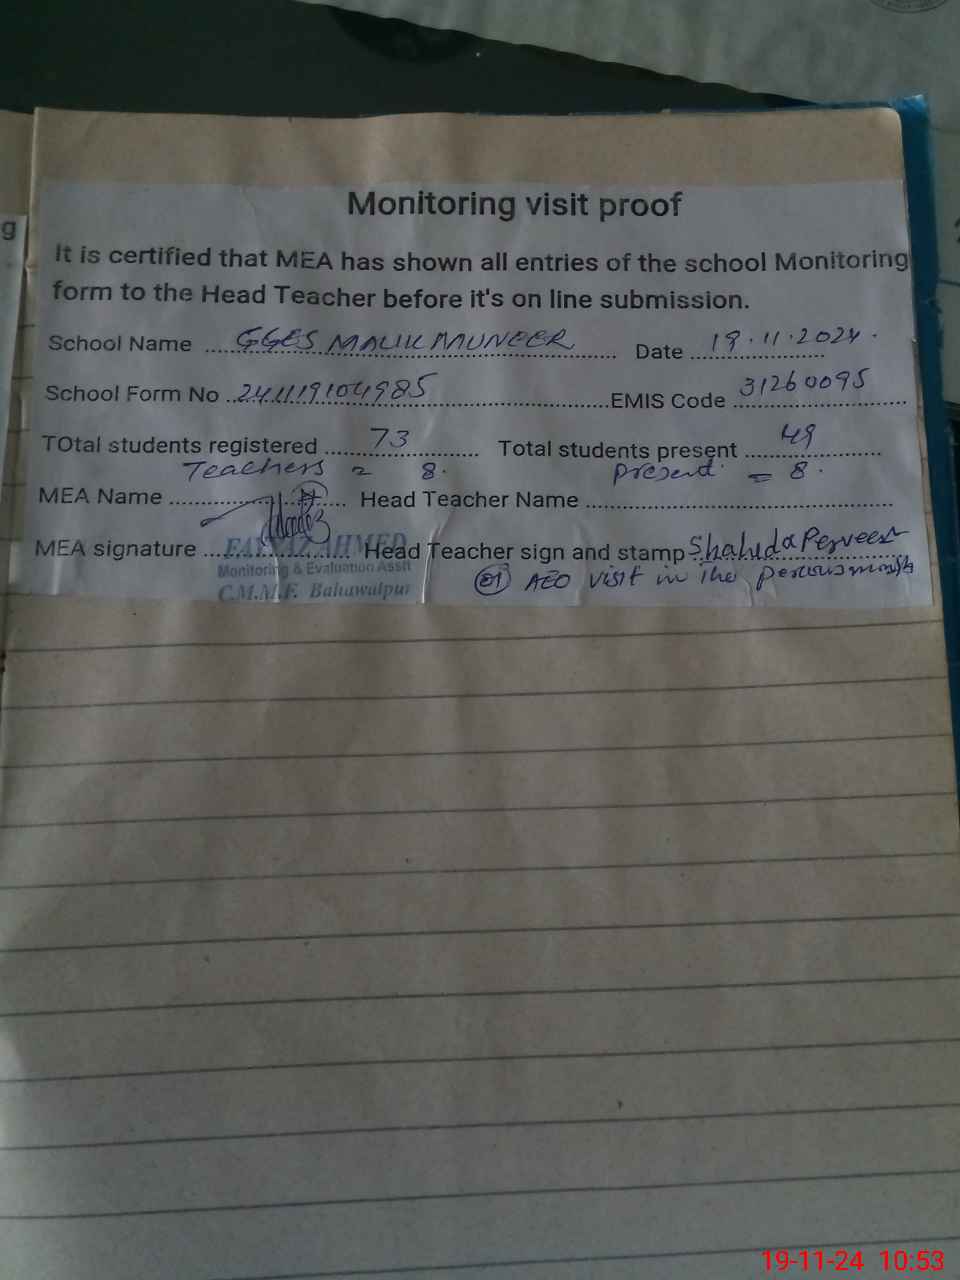 g
Monitoring visit proof
It is certified that MEA has shown all entries of the school Monitoring
form to the Head Teacher before it's on line submission.
School Name GGES MALIK MUNEER Date 19.11.2024.
School Form No 241119104985 EMIS Code 31260095
TOtal students registered 73 Total students present 49
Teachers = 8. present = 8.
MEA Name Head Teacher Name
MEA signature Head Teacher sign and stamp Shahida Perveen
FAYYAZ AHMED
Monitoring & Evaluation Asstt
C.M.M.F. Bahawalpur
01 AEO visit in the month
19-11-24 10:53